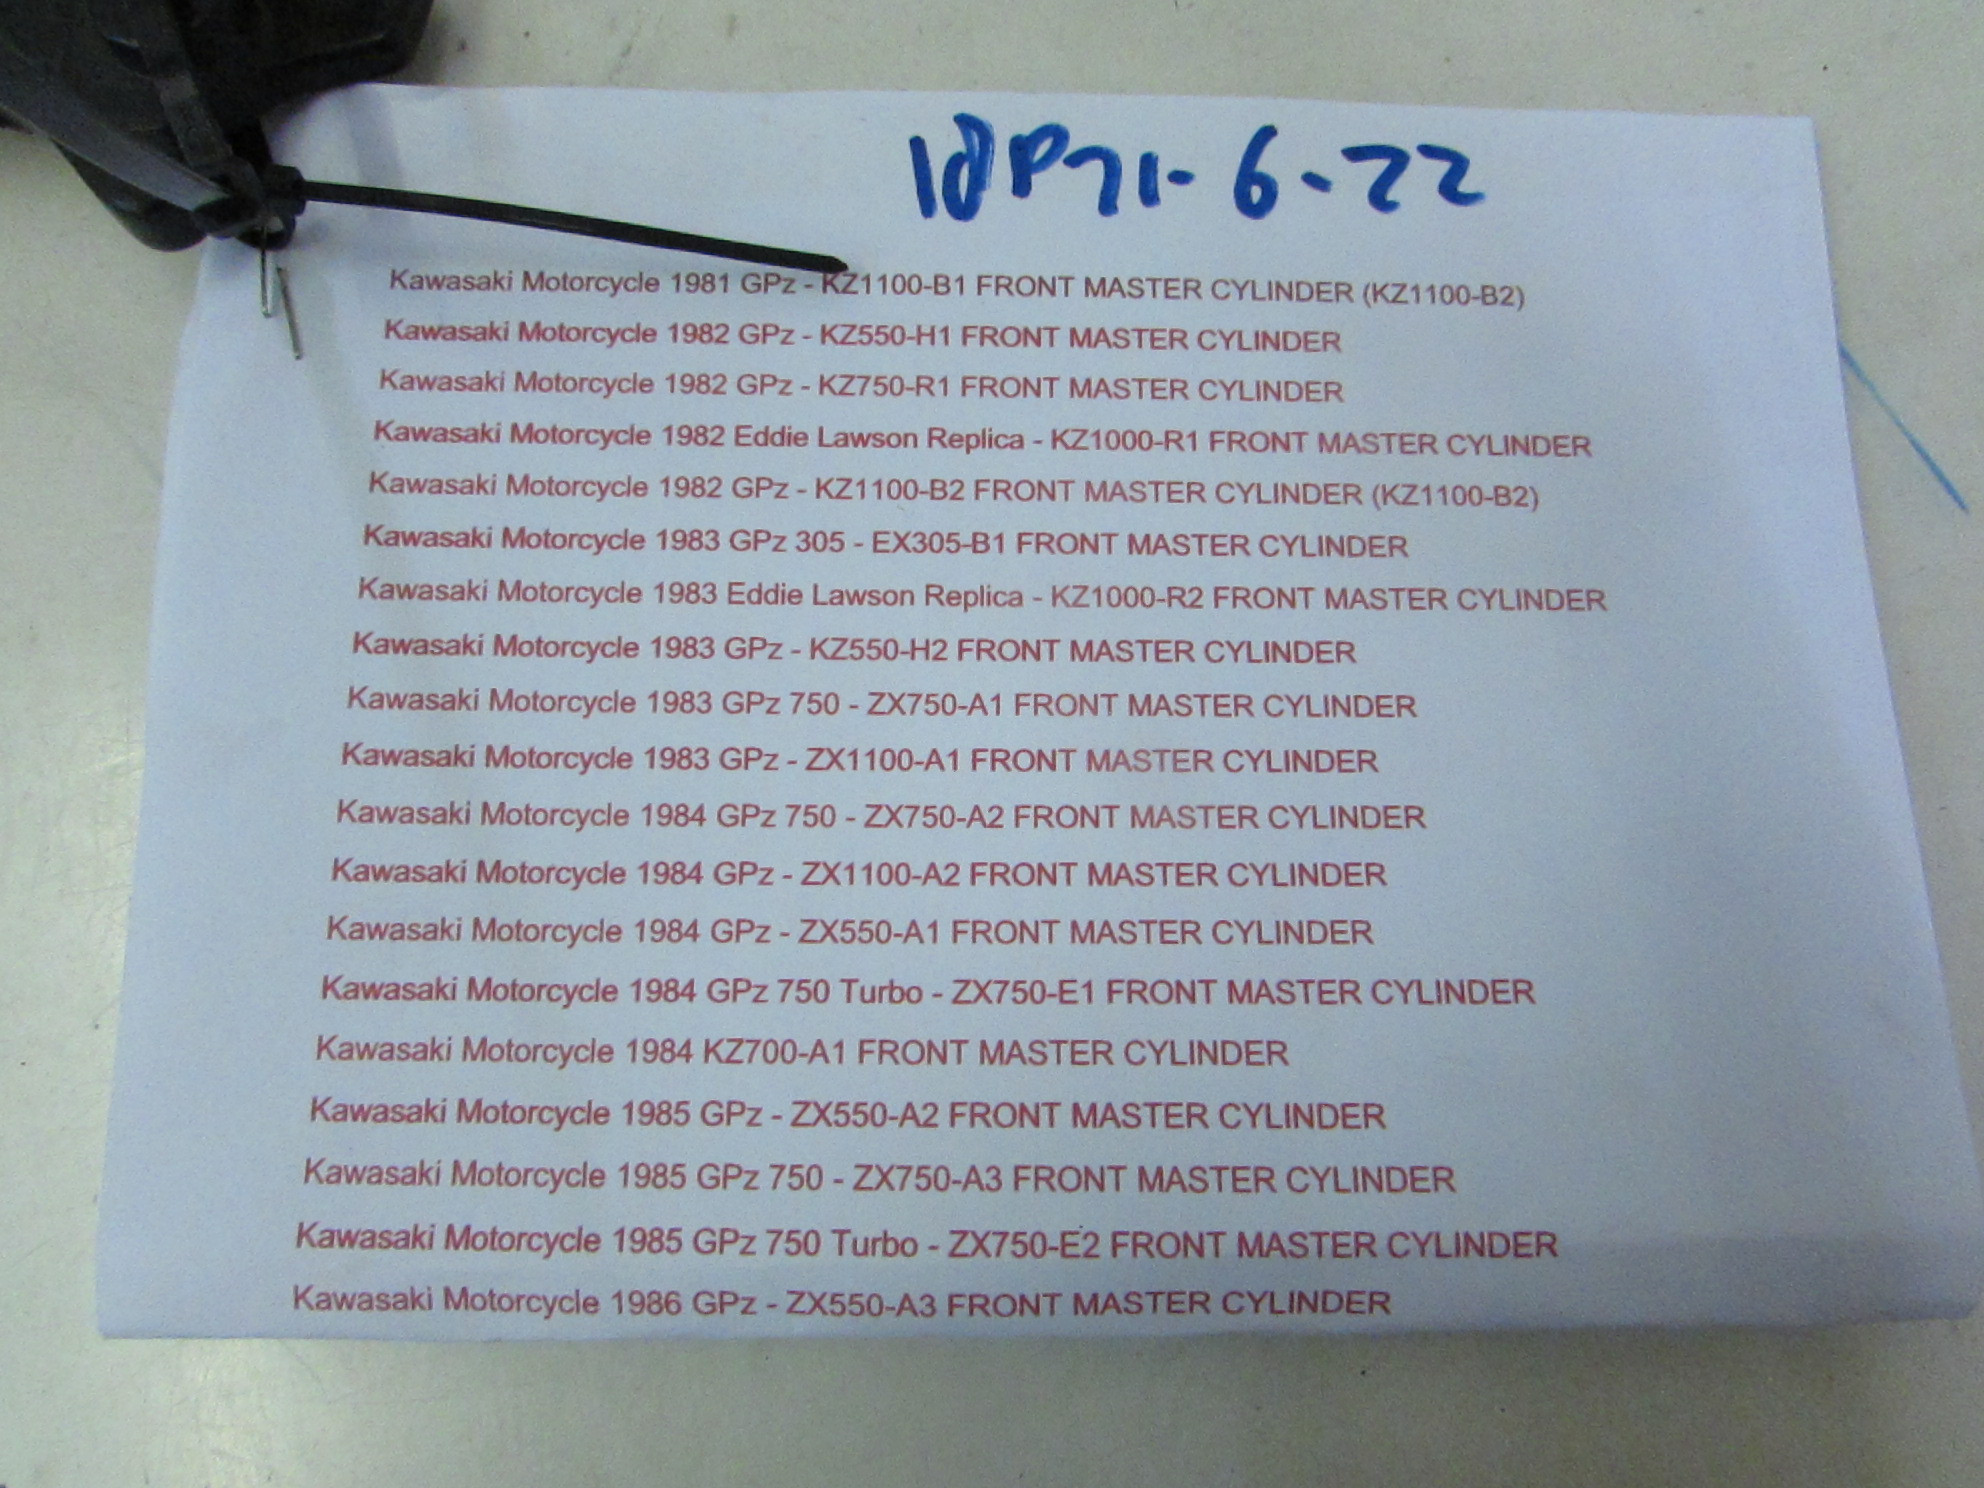 18P71-6-22
Kawasaki Motorcycle 1981 GPz - KZ1100-B1 FRONT MASTER CYLINDER (KZ1100-B2)
Kawasaki Motorcycle 1982 GPz - KZ550-H1 FRONT MASTER CYLINDER
Kawasaki Motorcycle 1982 GPz - KZ750-R1 FRONT MASTER CYLINDER
Kawasaki Motorcycle 1982 Eddie Lawson Replica - KZ1000-R1 FRONT MASTER CYLINDER
Kawasaki Motorcycle 1982 GPz - KZ1100-B2 FRONT MASTER CYLINDER (KZ1100-B2)
Kawasaki Motorcycle 1983 GPz 305 - EX305-B1 FRONT MASTER CYLINDER
Kawasaki Motorcycle 1983 Eddie Lawson Replica - KZ1000-R2 FRONT MASTER CYLINDER
Kawasaki Motorcycle 1983 GPz - KZ550-H2 FRONT MASTER CYLINDER
Kawasaki Motorcycle 1983 GPz 750 - ZX750-A1 FRONT MASTER CYLINDER
Kawasaki Motorcycle 1983 GPz - ZX1100-A1 FRONT MASTER CYLINDER
Kawasaki Motorcycle 1984 GPz 750 - ZX750-A2 FRONT MASTER CYLINDER
Kawasaki Motorcycle 1984 GPz - ZX1100-A2 FRONT MASTER CYLINDER
Kawasaki Motorcycle 1984 GPz - ZX550-A1 FRONT MASTER CYLINDER
Kawasaki Motorcycle 1984 GPz 750 Turbo - ZX750-E1 FRONT MASTER CYLINDER
Kawasaki Motorcycle 1984 KZ700-A1 FRONT MASTER CYLINDER
Kawasaki Motorcycle 1985 GPz - ZX550-A2 FRONT MASTER CYLINDER
Kawasaki Motorcycle 1985 GPz 750 - ZX750-A3 FRONT MASTER CYLINDER
Kawasaki Motorcycle 1985 GPz 750 Turbo - ZX750-E2 FRONT MASTER CYLINDER
Kawasaki Motorcycle 1986 GPz - ZX550-A3 FRONT MASTER CYLINDER